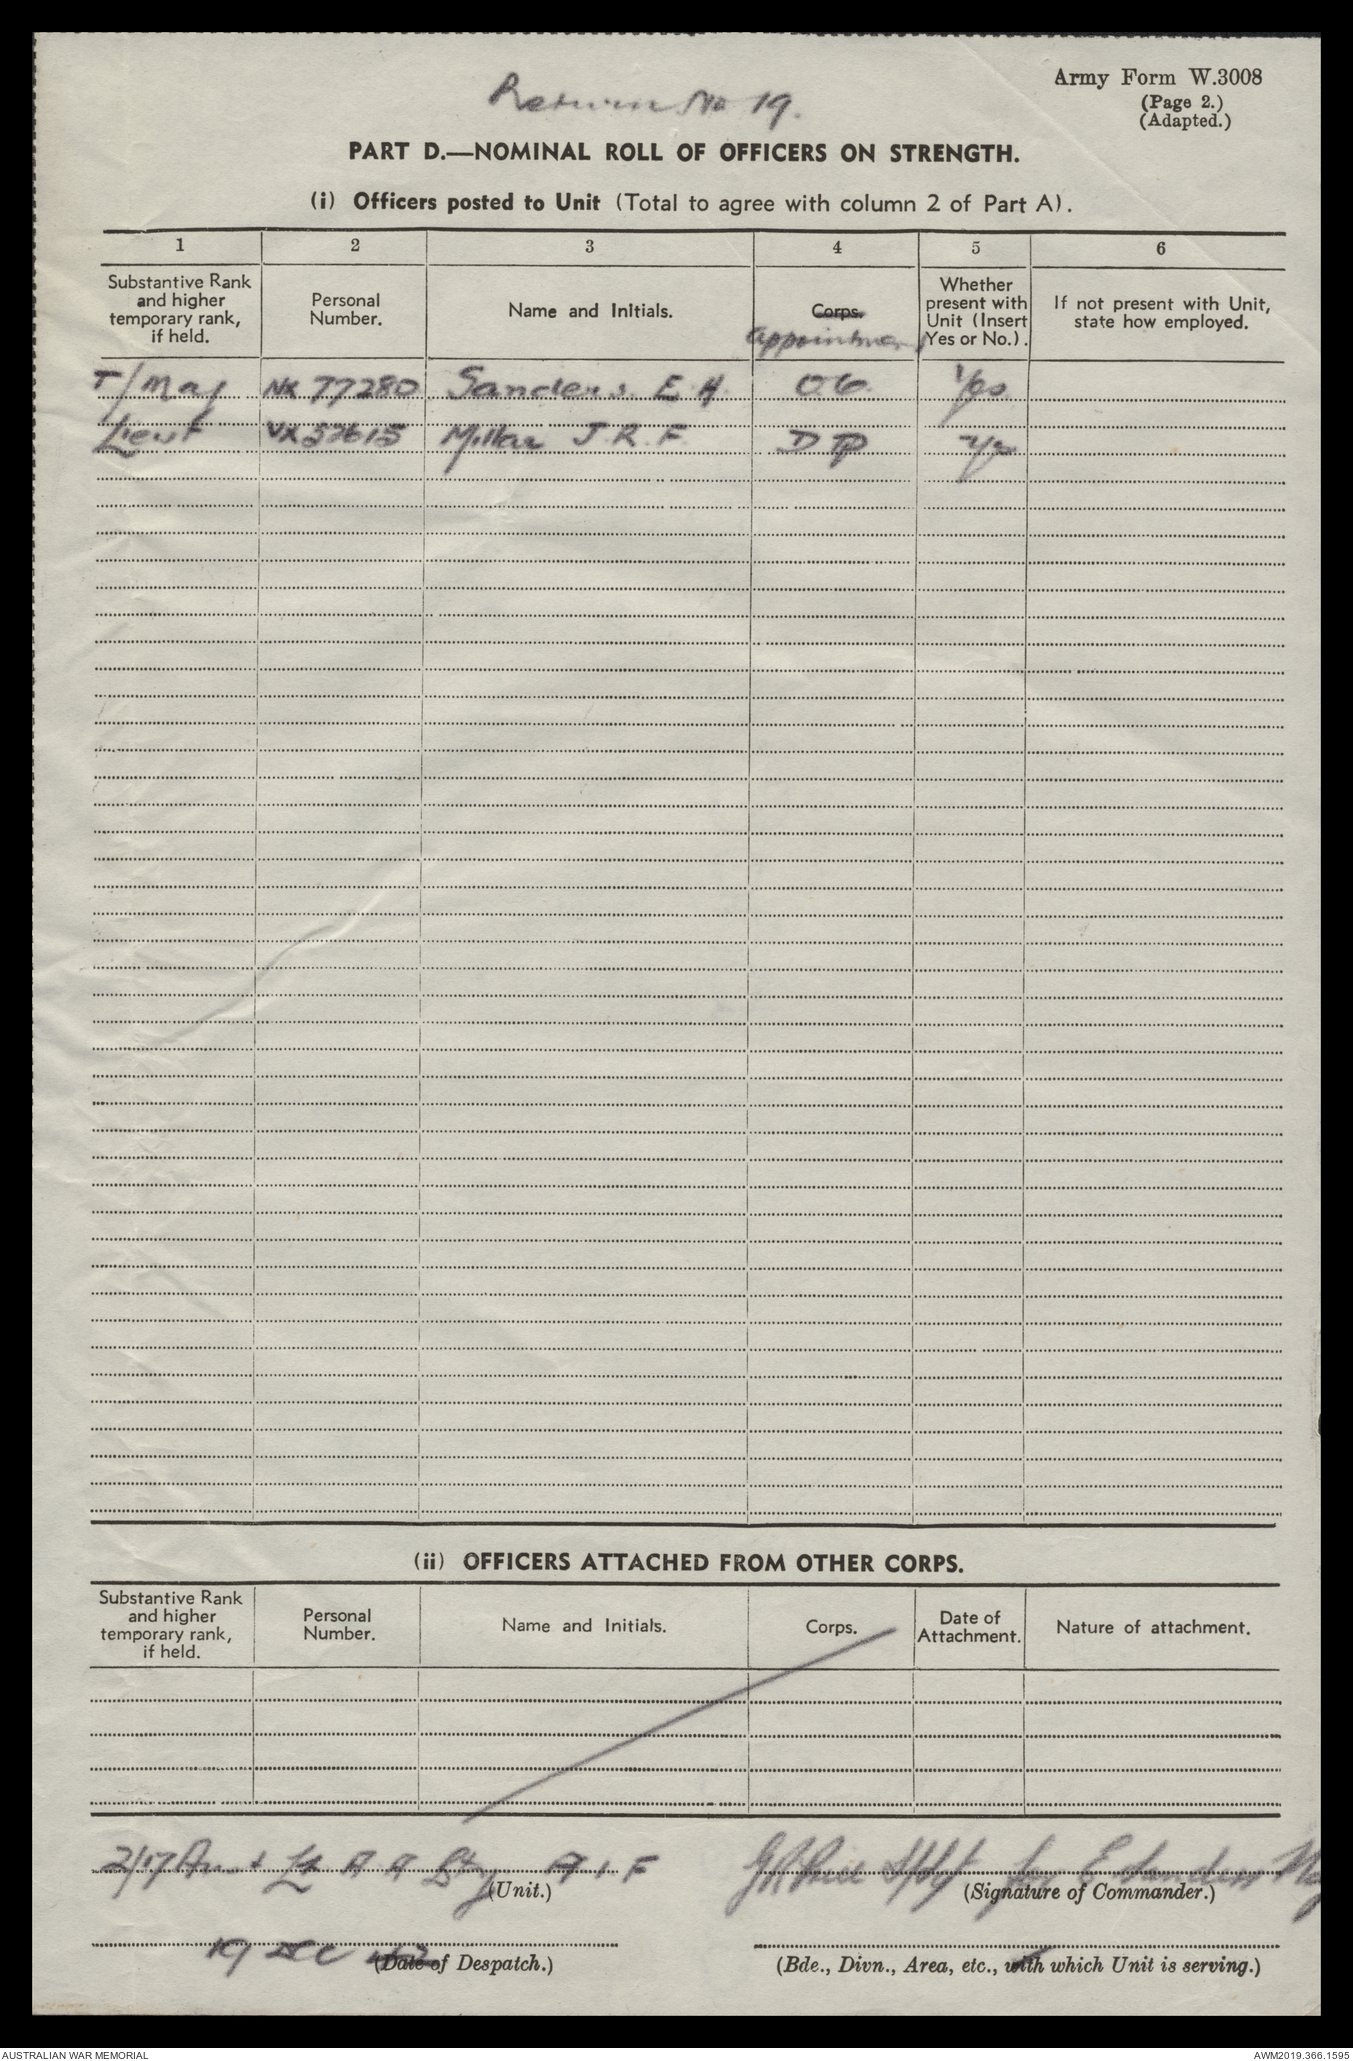 Return No 19.
Army Form W.3008
(Page 2.)
(Adapted.)
PART D.—NOMINAL ROLL OF OFFICERS ON STRENGTH.
(i) Officers posted to Unit (Total to agree with column 2 of Part A).
1 2 3 4 5 6
Substantive Rank and higher temporary rank, if held. Personal Number. Name and Initials. Corps. Appointment Whether present with Unit (Insert Yes or No.). If not present with Unit, state how employed.
T/Maj NX 77280 Sanders. E. H. O.C. Yes
Lieut VX 52615 Millar J. R. F. Yes
(ii) OFFICERS ATTACHED FROM OTHER CORPS.
Substantive Rank and higher temporary rank, if held. Personal Number. Name and Initials. Corps. Date of Attachment. Nature of attachment.
2/17 Aust Lt A A Bty A I F for E Sanders Maj
(Unit.) (Signature of Commander.)
19 Dec
(Date of Despatch.) (Bde., Divn., Area, etc., with which Unit is serving.)
AUSTRALIAN WAR MEMORIAL AWM2019.366.1595